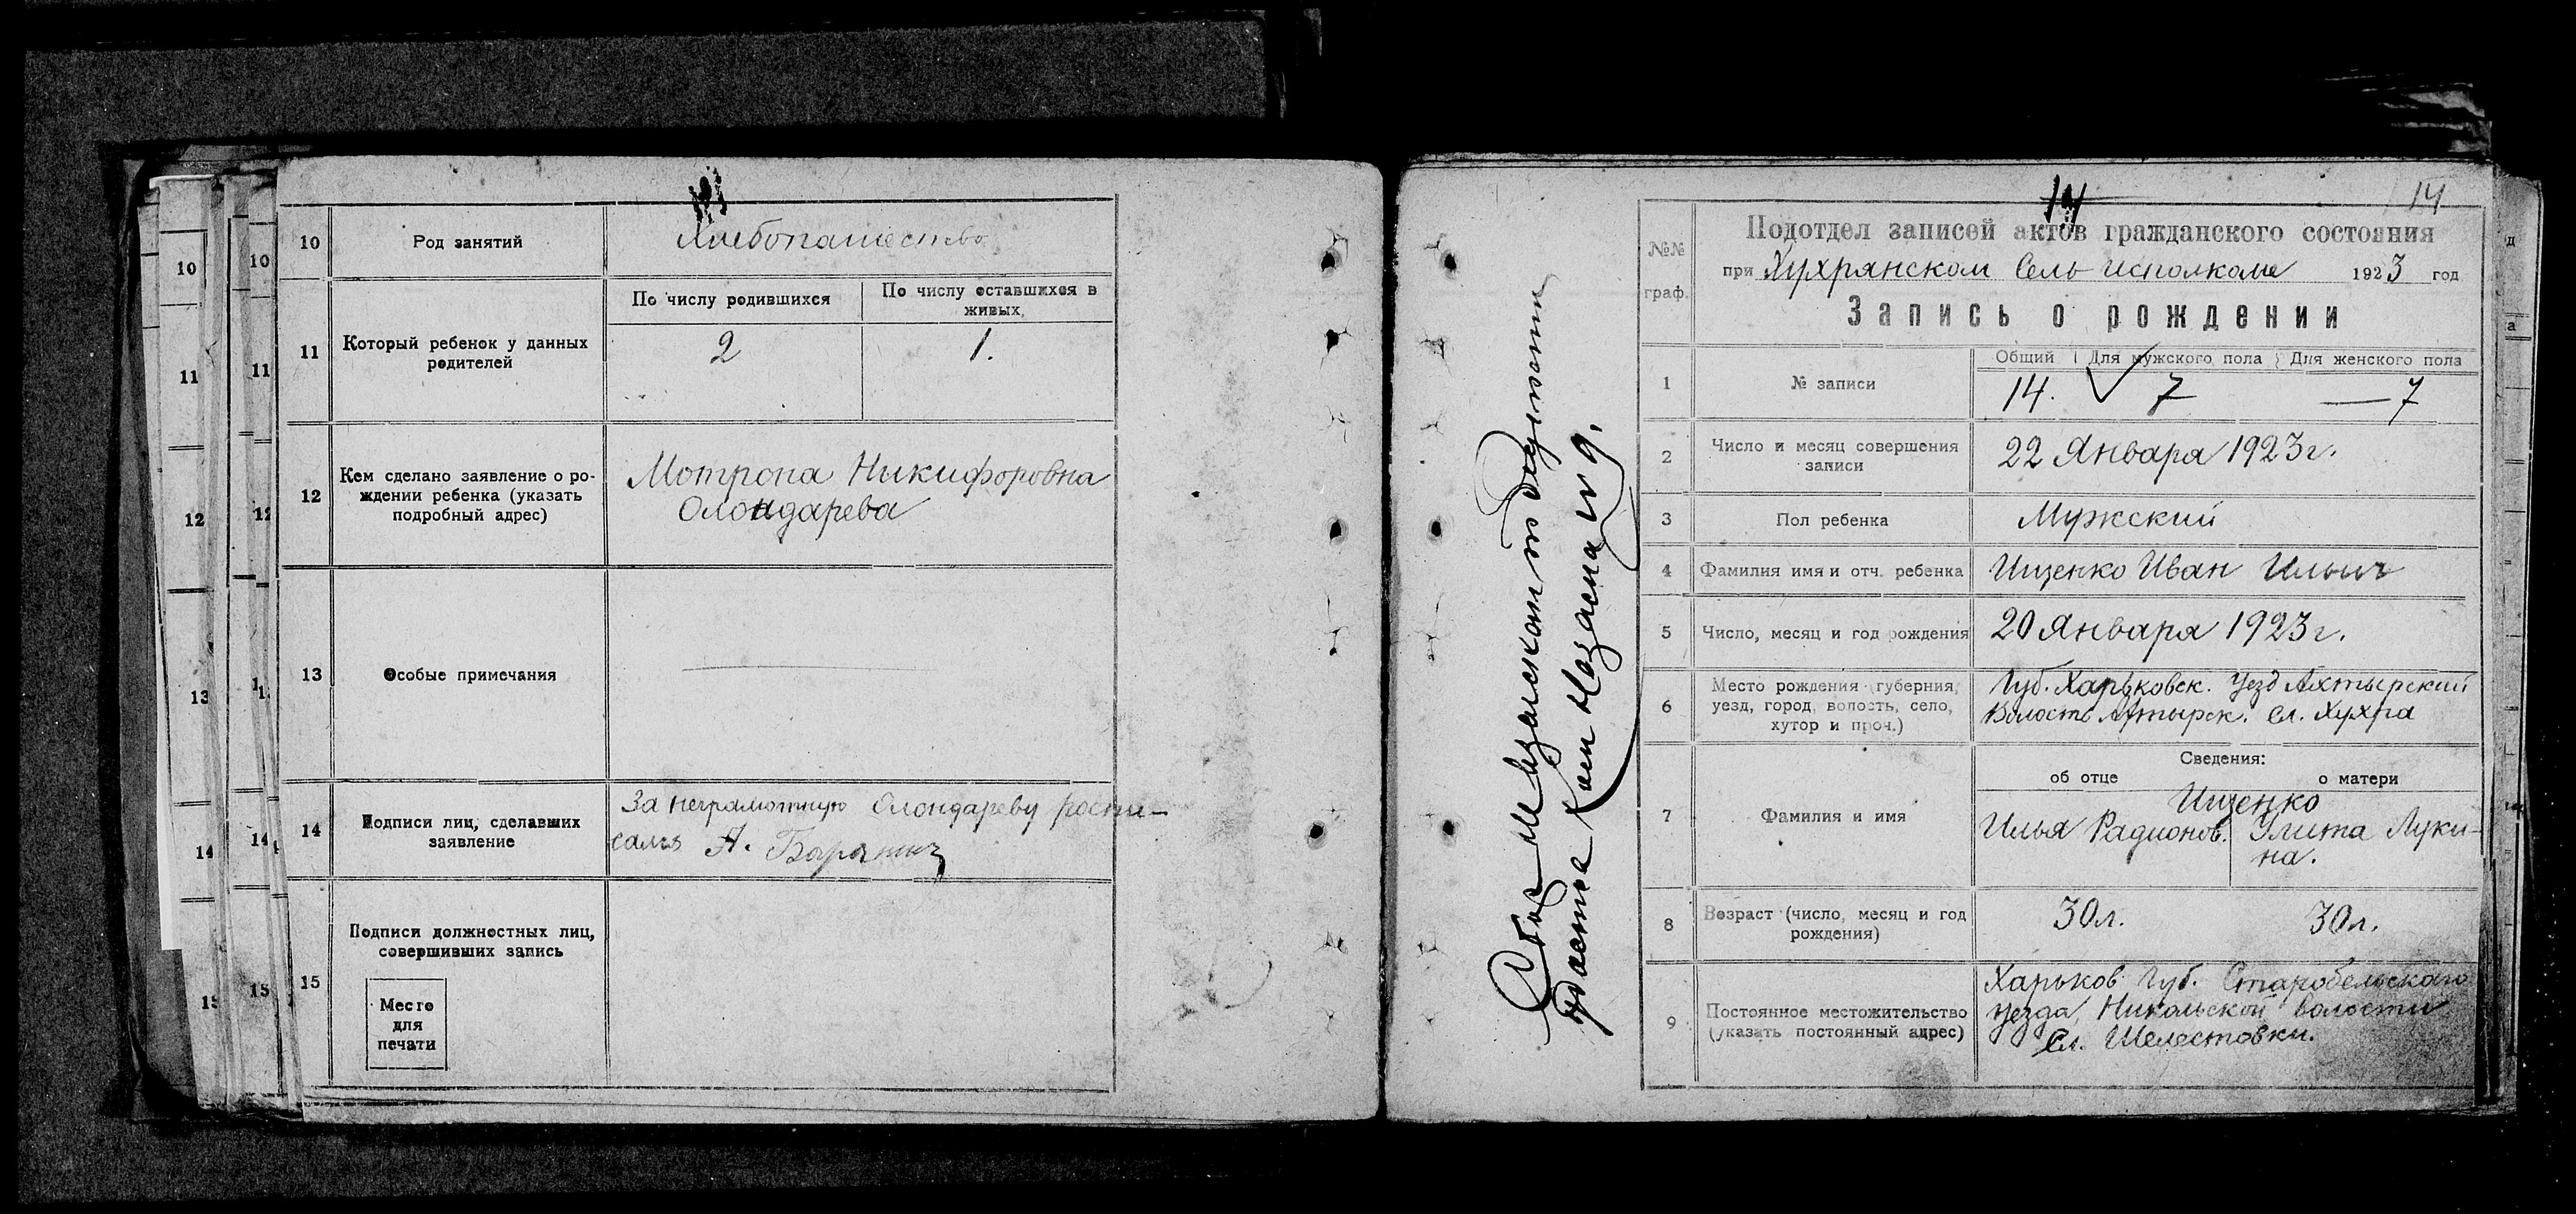 10
Род занятий
Хлебопашество
11
Который ребенок у данных
родителей
По числу родившихся
По числу оставшихся в
живых.
2
1.
12
Кем сделано заявление о ро-
ждении ребенка (указать
подробный адрес)
Мотрона Никифоровна
Олондарева
13
Особые примечания
14
Подписи лиц, сделавших
заявление
За неграмотную Олондареву роспи-
сался А.
15
Подписи должностных лиц,
совершивших запись
Место
для
печати
10
11
12
13
14
15
10
11
12
14
15
14
14
№№
граф.
Подотдел записей актов гражданского состояния
при Хухрянском Сель исполкоме 1923 год
Запись о рождении
1
№ записи
Общий
Для мужского пола
Для женского пола
14.
7
— 7
2
Число и месяц совершения
записи
22 Января 1923 г.
3
Пол ребенка
Мужский
4
Фамилия имя и отч. ребенка
Ищенко Иван Ильич
5
Число, месяц и год рождения
20 Января 1923 г.
6
Место рождения (губерния,
уезд, город, волость, село,
хутор и проч.)
Губ. Харьковск. Уезд Ахтырский
Волость Ахтырск. Сл. Хухра
Сведения:
об отце
о матери
7
Фамилия и имя
Ищенко
Илья Радионов.
Улита Луки-
на.
8
Возраст (число, месяц и год
рождения)
30 л.
30 л.
9
Постоянное местожительство
(указать постоянный адрес)
Харьков Губ. Старобельского
уезда, Никольской волости
Сл. Шелестовки.